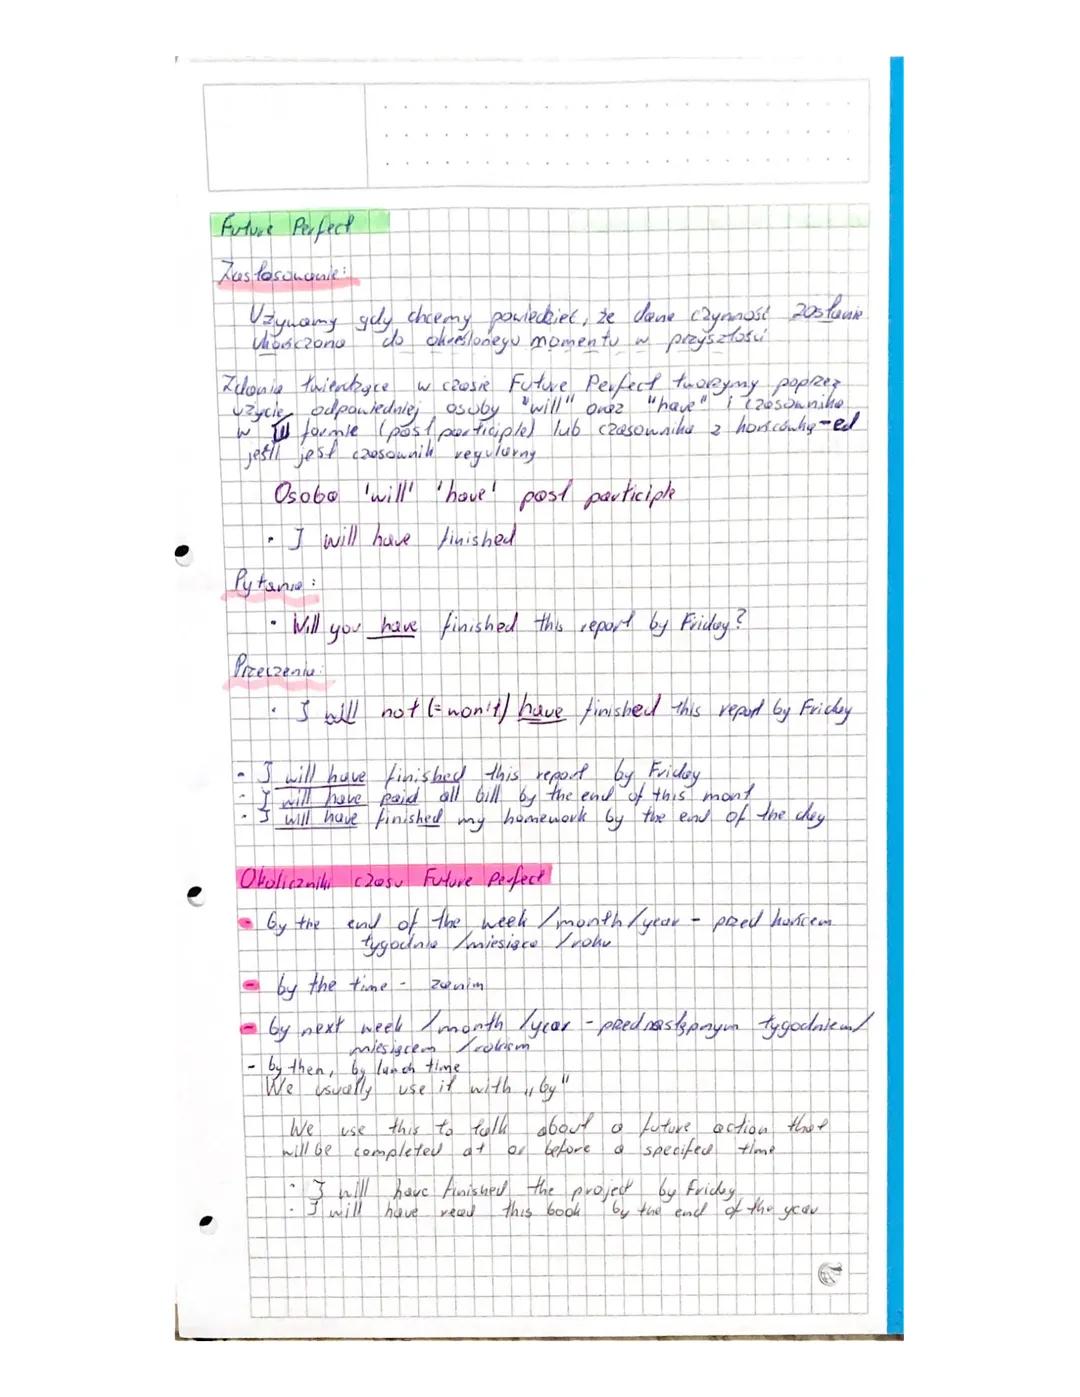 Future Perfect
Zastosowanie:
Używamy gdy chcemy powiedzieć, że dana czynność zostanie
ukończona do określonego momentu w przyszłości
Zdania twierdzące w czasie Future Perfect tworzymy poprzez
użycie odpowiedniej osoby "will" oraz "have" i czasownika
w III formie (past participle) lub czasownika z końcówką -ed
jeśli jest czasownik regularny
Osoba 'will' 'have' past participle
• I will have finished
Pytania:
• Will you have finished this report by Friday?
Przeczenia:
• I will not (= won't) have finished this report by Friday
- I will have finished this report by Friday
- I will have paid all bill by the end of this mont
• I will have finished my homework by the end of the day
Okoliczniki czasu Future Perfect
- by the end of the week /month/year - przed końcem
tygodnia /miesiąca /roku
- by the time - zanim
- by next week /month /year - przed następnym tygodniem/
miesiącem /rokiem
- by then, by lunch time
We usually use it with „by"
We use this to talk about a future action that
will be completed at or before a specifed time
• I will have finished the project by Friday
• I will have read this book by the end of the year